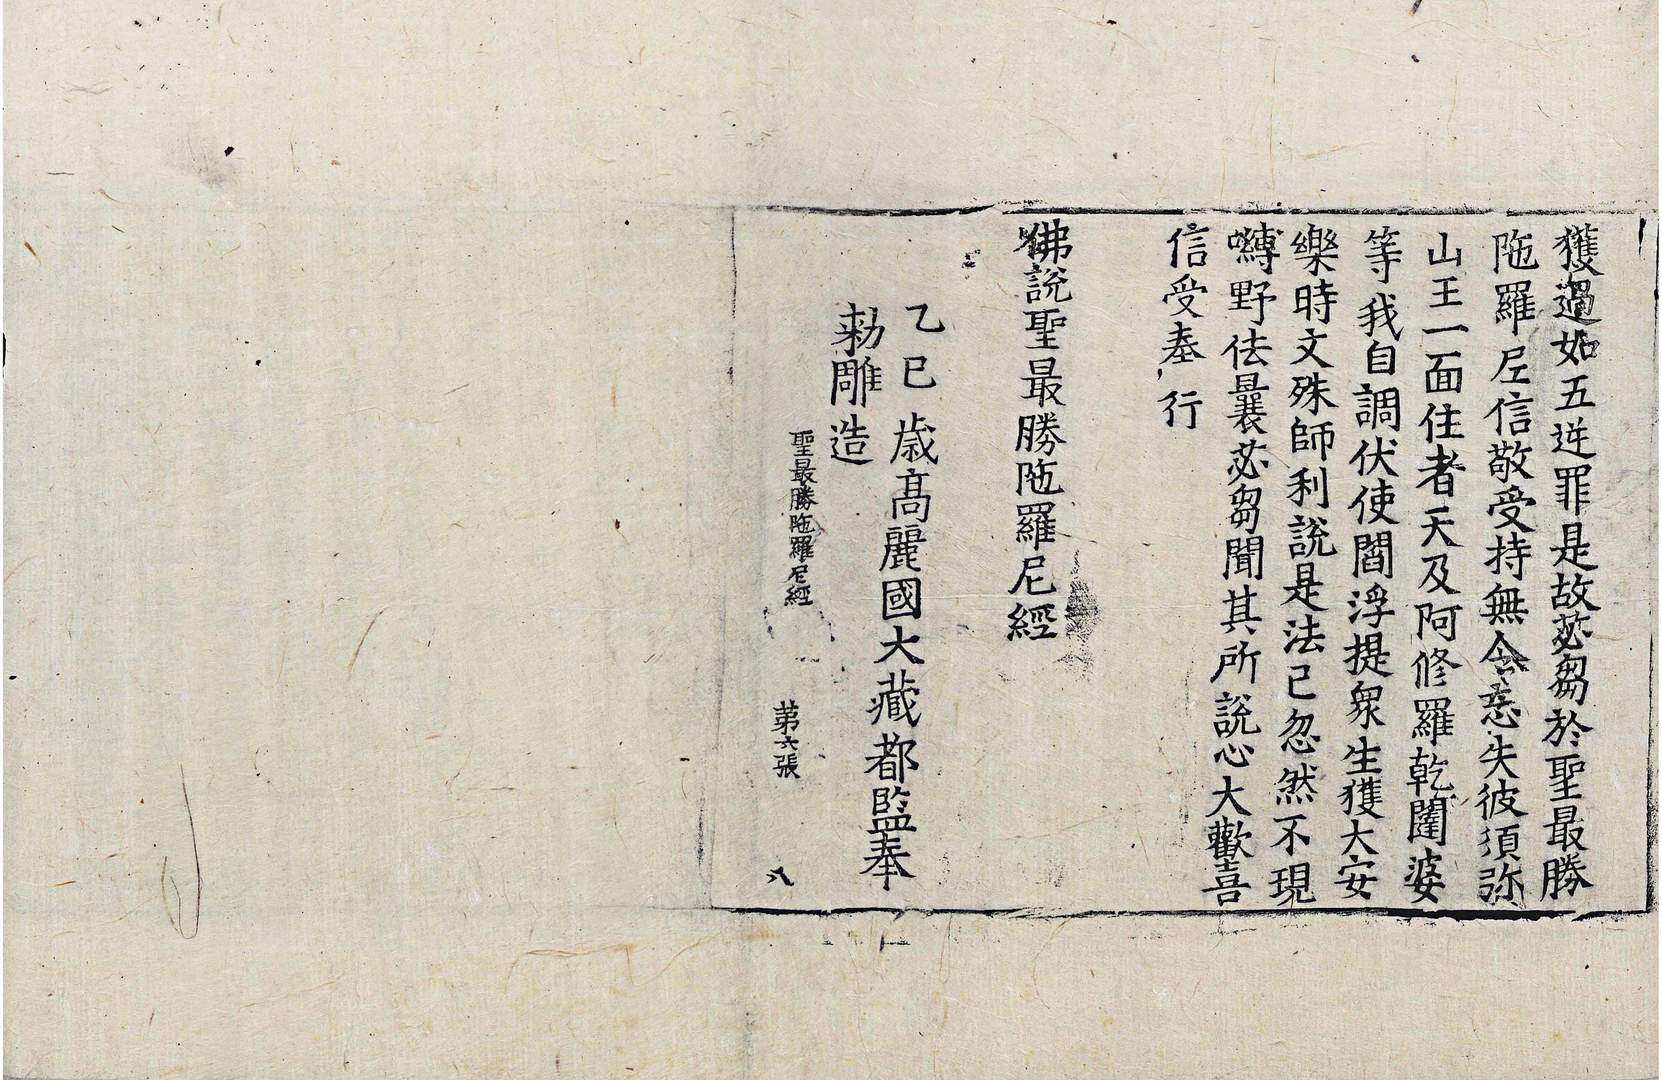 獲過如五逆罪是故苾芻於聖最勝
陁羅尼信敬受持無令忘失彼須弥
山王一面住者天及阿修羅乾闥婆
等我自調伏使閻浮提衆生獲大安
樂時文殊師利說是法已忽然不現
嚩野佉曩苾芻聞其所說心大歡喜
信受奉行
佛說聖最勝陁羅尼經
乙巳歲高麗國大藏都監奉
勅雕造
聖最勝陁羅尼經 第六張 八